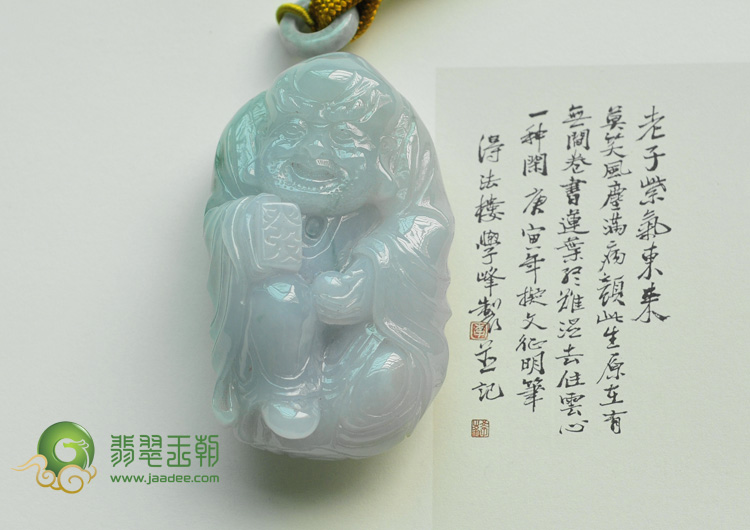 老子紫氣東来
莫笑風塵滿病顏此生原在有
無間卷書蓮葉终難湿去住雲心
一种閑庚寅年擬文征明筆
得法樓學峰製並記
翡翠王朝
www.jaadee.com